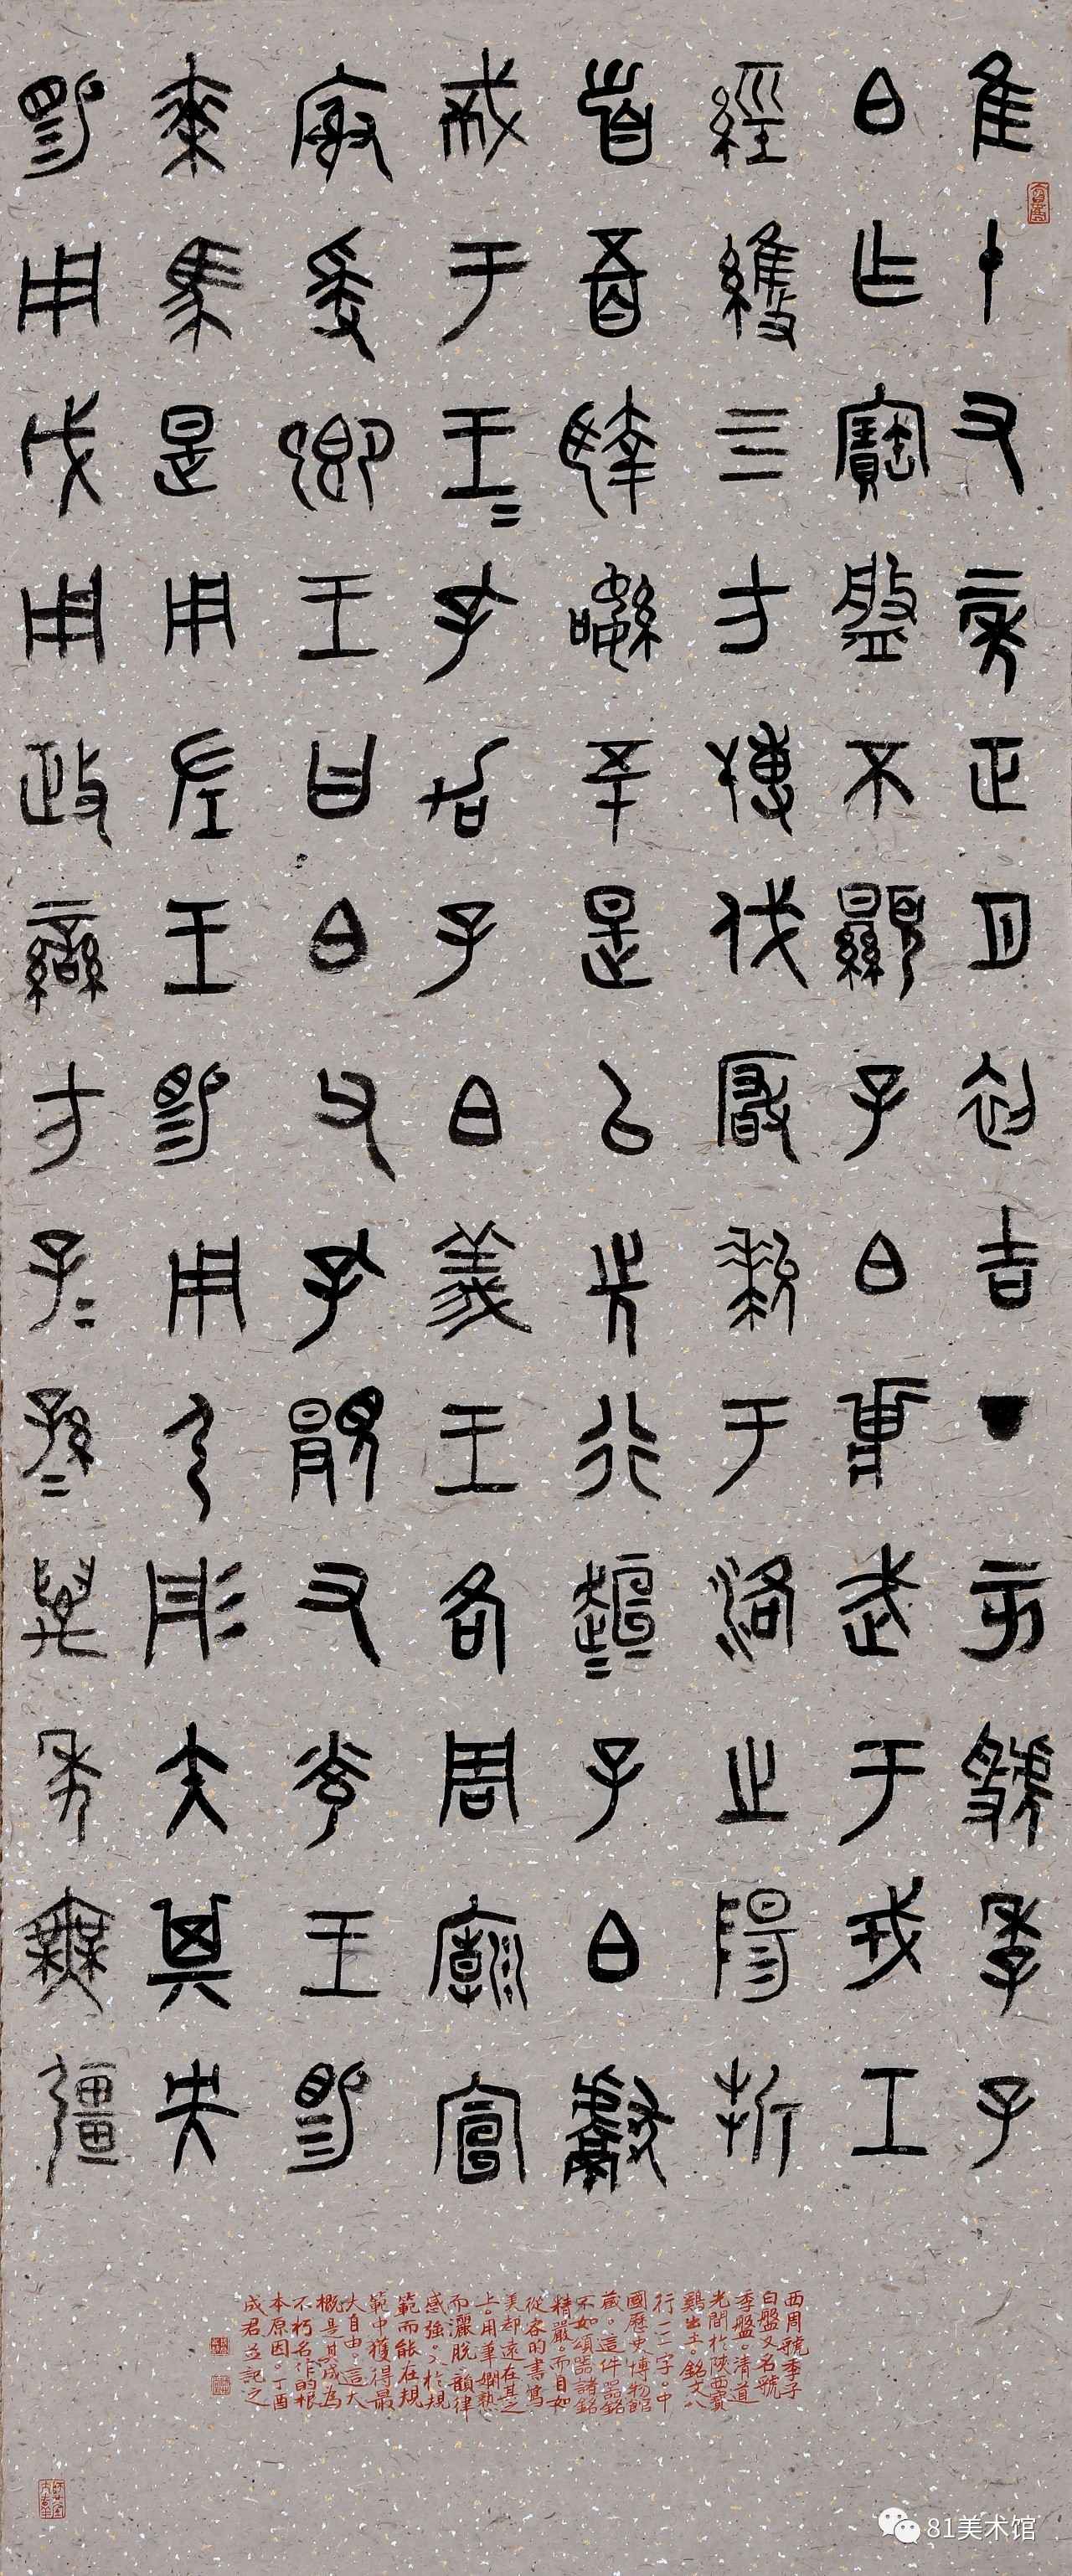 隹十又二年正月初吉丁亥虢季子
白乍寶盤不顯子白𩵦武于戎工
經維四方搏伐玁狁于洛之陽折
首五百執訊五十是以先行趄=子白獻
戒于王=孔加子白義王各周廟宣
廄爰鄉王曰白父孔顯又光王睗
乘馬是用左王睗用弓彤矢其央
睗用戉用政蠻方子=孫=萬年無疆
西周虢季子
白盤又名虢
季盤。清道
光間於陝西寶
雞出土。銘文八
行一一一字。中
國歷史博物館
藏。這件器銘
不如頌器諸銘
精嚴。而自如
從容的書寫
美却遠在其之
上。用筆嫻熟
而灑脱。韻律
感強。入於規
範而能在規
範中獲得最
大自由。這大
概是其成為
不朽名作的根
本原因。丁酉
成君並記之
81美术馆